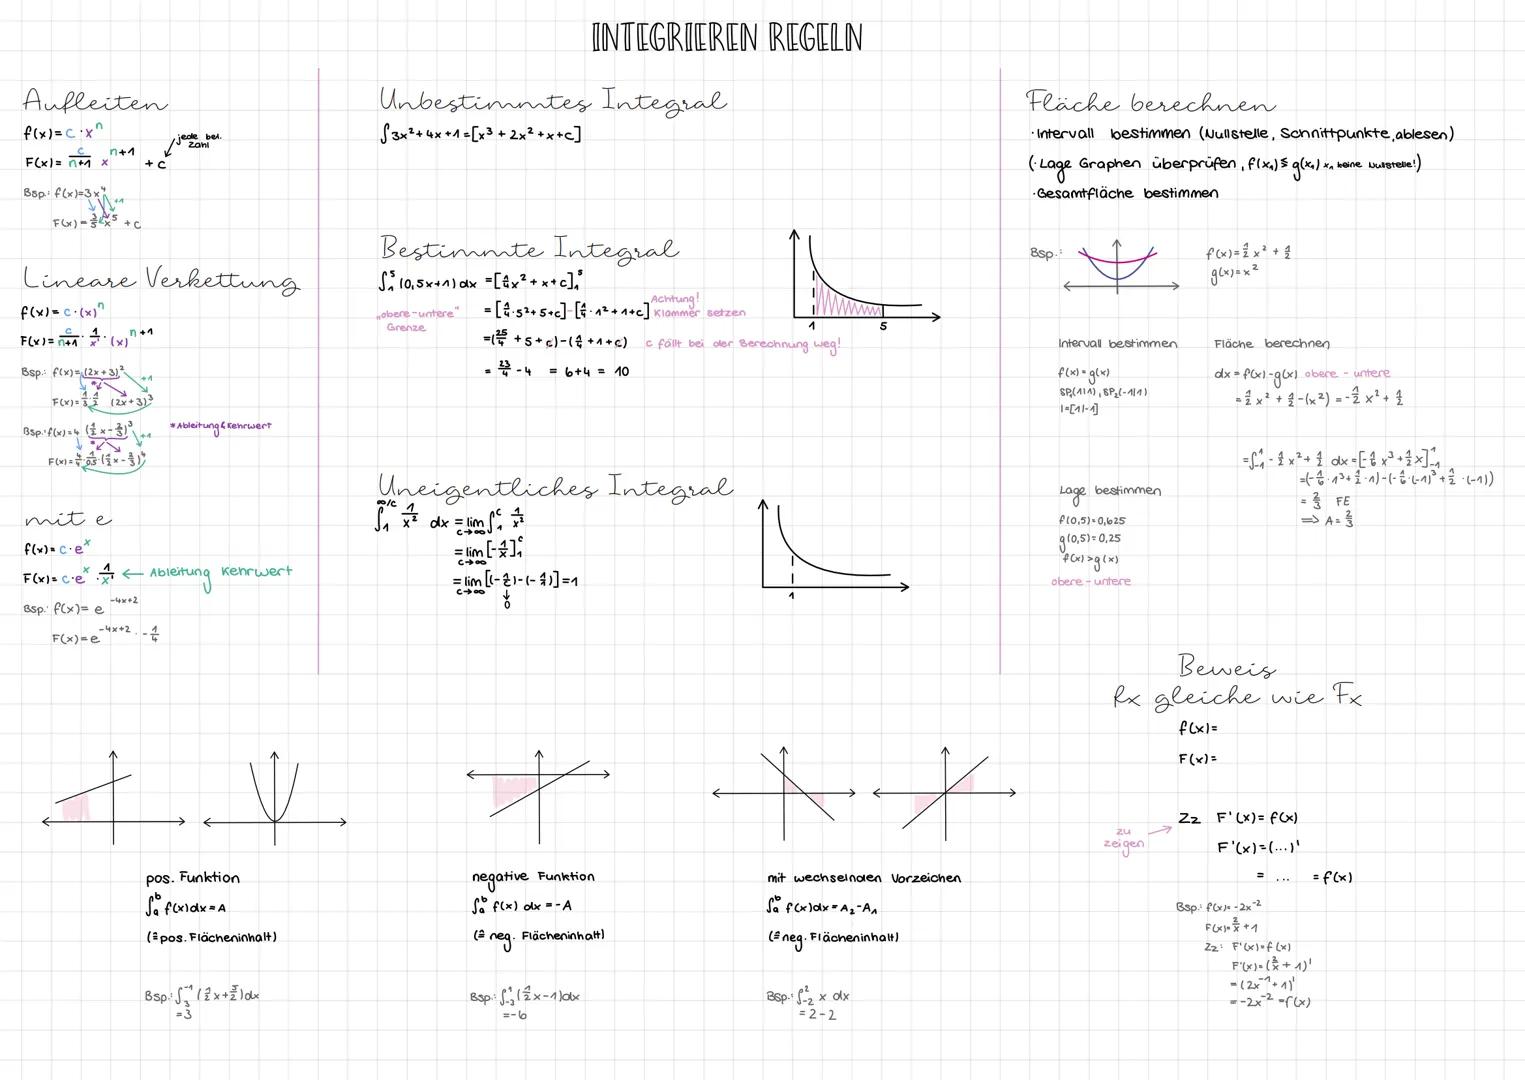 INTEGRIEREN REGELN
Aufleiten
f(x)= c · x^n
F(x)= c/(n+1) x^(n+1) + c
jede bel. Zahl
Bsp.: f(x)=3x^4
+1
F(x)= 3/5 x^5 + c
Lineare Verkettung
f(x)= c · (x)^n
F(x)= c/(n+1) · 1/x' · (x)^(n+1)
Bsp.: f(x)= (2x+3)^2
+1
*
F(x)= 1/3 · 1/2 (2x+3)^3
Bsp.: f(x)=4 (1/2 x - 2/3)^3
+1
*
*Ableitung & Kehrwert
F(x)= 4/4 · 1/0,5 · (1/2 x - 2/3)^4
mit e
f(x)= c · e^x
F(x)= c·e^x · 1/x' ← Ableitung Kehrwert
Bsp.: f(x)= e^(-4x+2)
F(x)= e^(-4x+2) · -1/4
Unbestimmtes Integral
∫ 3x² + 4x + 1 = [x³ + 2x² + x + c]
Bestimmte Integral
∫₁⁵ (0,5x+1) dx = [1/4 x² + x + c]₁⁵
„obere-untere" Grenze
= [1/4 · 5² + 5 + c] - [1/4 · 1² + 1 + c]
Achtung! Klammer setzen
= (25/4 + 5 + c) - (1/4 + 1 + c) c fällt bei der Berechnung weg!
= 23/4 - 4 = 6+4 = 10
1 5
Uneigentliches Integral
∫₁^(∞/c) 1/x² dx = lim c→∞ ∫₁^c 1/x²
= lim c→∞ [-1/x]₁^c
= lim c→∞ [(-1/c) - (-1/1)] = 1
↓
0
1
Fläche berechnen
· Intervall bestimmen (Nullstelle, Schnittpunkte, ablesen)
(· Lage Graphen überprüfen, f(x₁) ≶ g(x₁) x₁ keine Nullstelle!)
· Gesamtfläche bestimmen
Bsp.:
f(x)= 1/2 x² + 1/2
g(x)= x²
Intervall bestimmen
f(x) = g(x)
SP₁(1|1), SP₂(-1|1)
I=[1|-1]
Fläche berechnen
dx = f(x)-g(x) obere - untere
= 1/2 x² + 1/2 - (x²) = -1/2 x² + 1/2
= ∫₋₁¹ - 1/2 x² + 1/2 dx = [-1/6 x³ + 1/2 x]₋₁¹
= (-1/6 · 1³ + 1/2 · 1) - (-1/6 · (-1)³ + 1/2 · (-1))
= 2/3 FE
⟹ A = 2/3
Lage bestimmen
f(0,5)=0,625
g(0,5)=0,25
f(x) > g(x)
obere - untere
pos. Funktion
∫ₐᵇ f(x)dx = A
(≙ pos. Flächeninhalt)
Bsp.: ∫₃⁻¹ (1/2 x + 5/2) dx
= 3
negative Funktion
∫ₐᵇ f(x) dx = -A
(≙ neg. Flächeninhalt)
Bsp.: ∫₋₃¹ (1/2 x - 1) dx
= -6
mit wechselnden Vorzeichen
∫ₐᵇ f(x)dx = A₂ - A₁
(≙ neg. Flächeninhalt)
Bsp.: ∫₋₂² x dx
= 2 - 2
Beweis
fx gleiche wie Fx
f(x)=
F(x)=
zu zeigen
Zz F'(x)= f(x)
F'(x)=(...)'
= ... = f(x)
Bsp.: f(x)= -2x⁻²
F(x)= 2/x + 1
Zz: F'(x)=f(x)
F'(x)= (2/x + 1)'
= (2x⁻¹ + 1)'
= -2x⁻² = f(x)